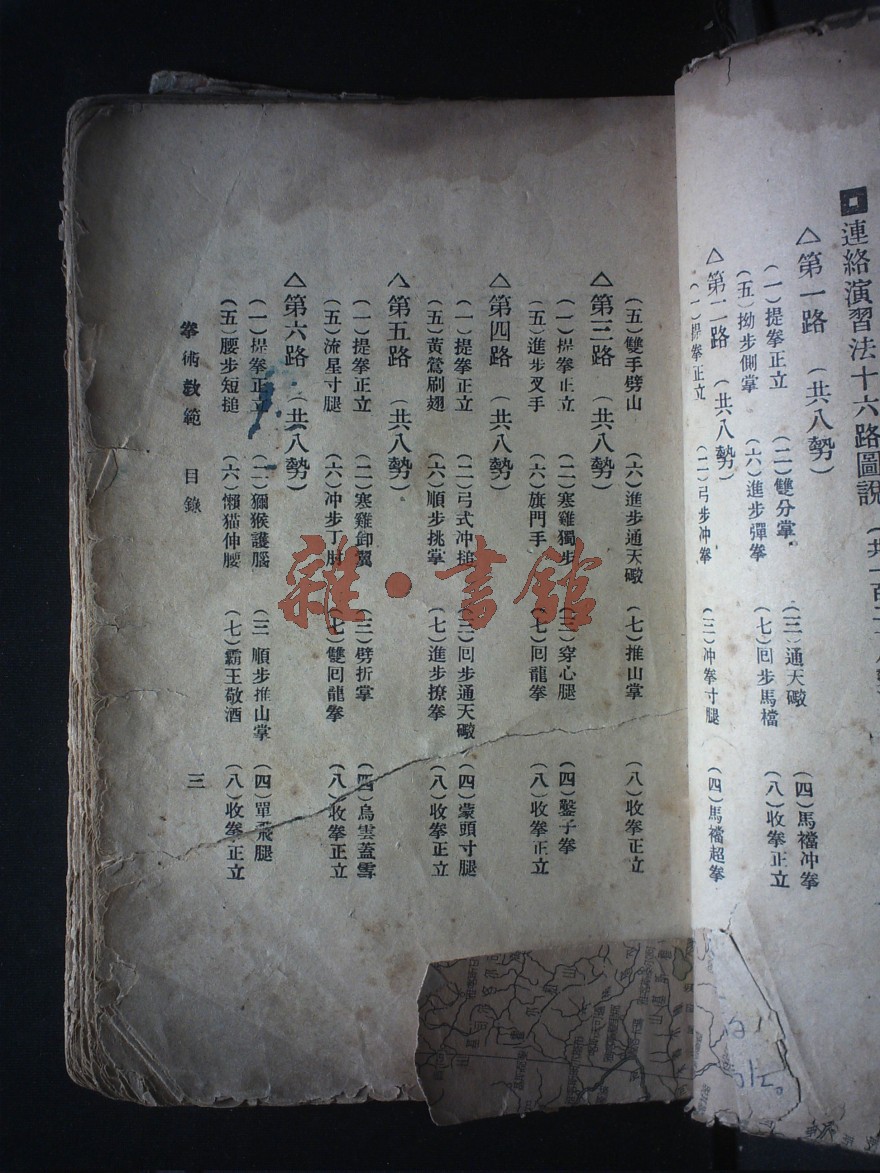 連絡演習法十六路圖說
△第一路 （共八勢）
（一）提拳正立 （二）雙分掌 （三）通天礮 （四）馬襠冲拳
（五）拗步側掌 （六）進步彈拳 （七）回步馬檔 （八）收拳正立
△第二路 （共八勢）
（一）提拳正立 （二）弓步冲拳 （三）冲拳寸腿 （四）馬襠超拳
（五）雙手劈山 （六）進步通天礮 （七）推山掌 （八）收拳正立
△第三路 （共八勢）
（一）提拳正立 （二）寒雞獨步 （三）穿心腿 （四）鑿子拳
（五）進步叉手 （六）旗門手 （七）回龍拳 （八）收拳正立
△第四路 （共八勢）
（一）提拳正立 （二）弓式冲搥 （三）回步通天礮 （四）蒙頭寸腿
（五）黃鶯刷翅 （六）順步挑掌 （七）進步撩拳 （八）收拳正立
△第五路 （共八勢）
（一）提拳正立 （二）寒雞卸翼 （三）劈折掌 （四）烏雲蓋雪
（五）流星寸腿 （六）冲步丁肘 （七）雙回龍拳 （八）收拳正立
△第六路 （共八勢）
（一）提拳正立 （二）獼猴護腦 （三 順步推山掌 （四）單飛腿
（五）腰步短搥 （六）懶猫伸腰 （七）霸王敬酒 （八）收拳正立
拳術教範 目錄 三
雜·書館